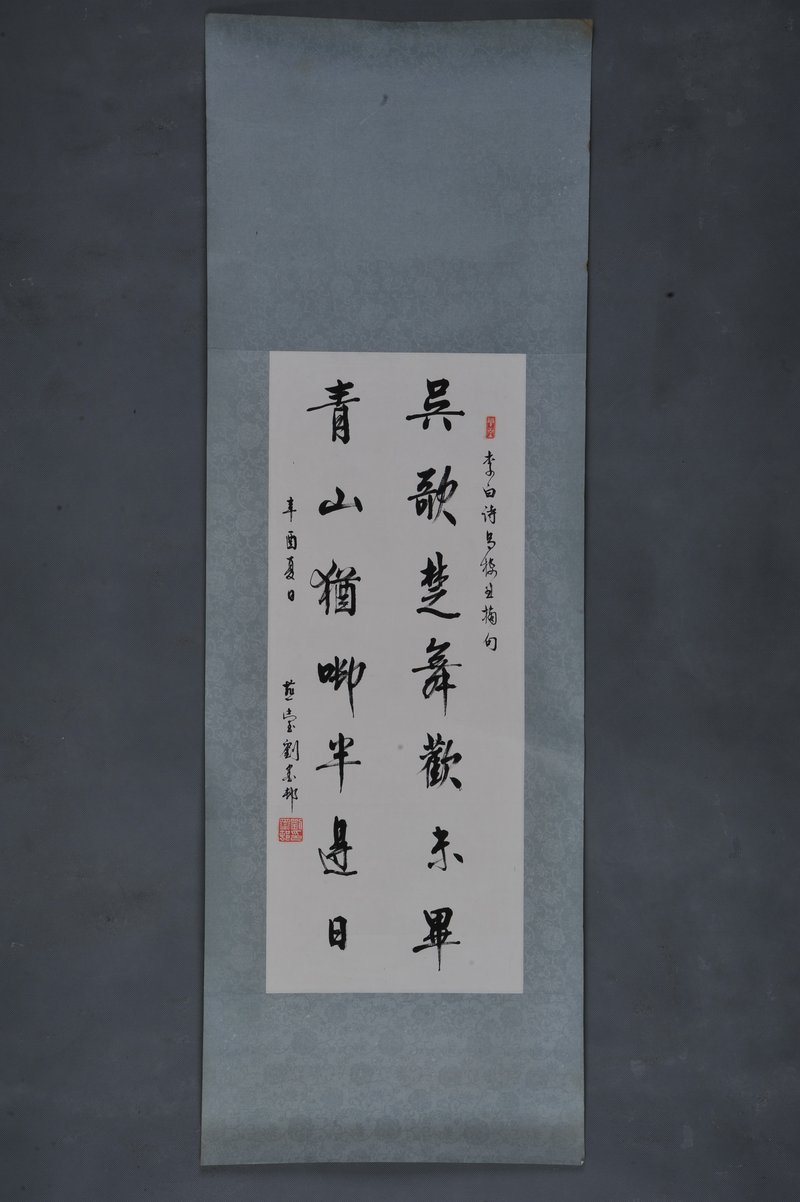 李白诗乌栖曲摘句
吳歌楚舞歡未畢
青山猶啣半邊日
辛酉夏日
劉